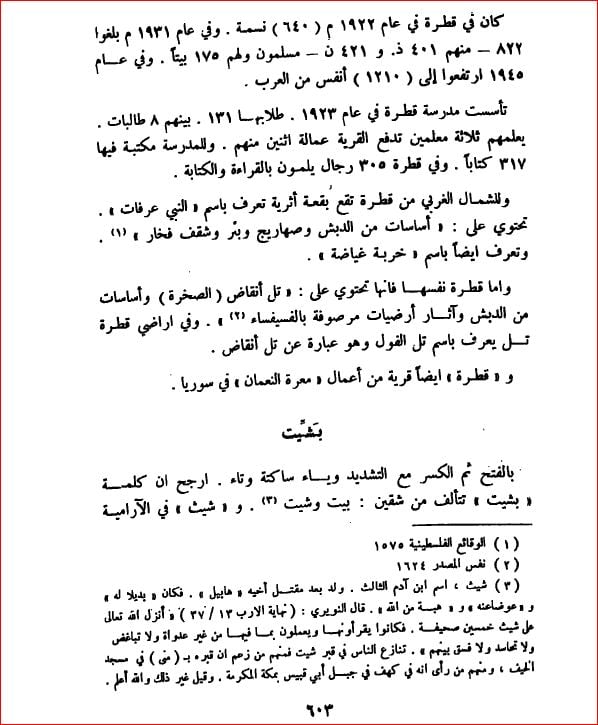 كان في قطرة في عام ١٩٢٢ م ( ٦٤٠ ) نسمة . وفي عام ١٩٣١ م بلغوا
٨٢٢ – منهم ٤٠١ ذ. و ٤٢١ ن – مسلمون ولهم ١٧٥ بيتاً . وفي عــام
١٩٤٥ ارتفعوا إلى ( ١٢١٠ ) أنفس من العرب .
تأسست مدرسة قطرة في عام ١٩٢٣ . طلابهـا ١٣١ . بينهم ٨ طالبات .
يعلمهم ثلاثة معلمين تدفع القرية عمالة اثنين منهم . وللمدرسة مكتبة فيها
٣١٧ كتاباً . وفي قطرة ٣٠٥ رجال يلمون بالقراءة والكتابة .
وللشمال الغربي من قطرة تقع بقعة أثرية تعرف باسم « النبي عرفات » .
تحتوي على : « أساسات من الدبش وصهاريج وبئر وشقف فخار » (١) .
وتعرف ايضاً باسم « خربة غياضة » .
واما قطرة نفسهــا فانها تحتوي على : « تل أنقاض ( الصخرة ) وأساسات
من الدبش وآثــار أرضيات مرصوفة بالفسيفساء (٢) » . وفي اراضي قطرة
تــل يعرف باسم تل الفول وهو عبارة عن تل أنقاض .
و « قطرة » ايضاً قرية من أعمال « معرة النعمان » في سوريا .
بَشِّيت
بالفتح ثم الكسر مع التشديد ويــاء ساكتة وتاء . ارجح ان كلمــة
« بشيت » تتألف من شقين : بيت وشيت (٣) . و « شيث » في الآرامية
( ١ ) الوقائع الفلسطينية ١٥٧٥
( ٢ ) نفس المصدر ١٦٢٤
( ٣ ) شيث ، اسم ابن آدم الثالث . ولد بعد مقتــل أخيه « هابيل » . فكان « بديلا له »
و « عوضاعنه » و « هبــة من الله » . قال النويري : ( نهاية الارب ١٣ / ٣٧ ) « أنزل الله تعالى
على شيث خمسين صحيفــة . فكانوا يقرأونهــا ويعملون بمــا فيهــا من غير عدواة ولا تباغض
ولا تحاسد ولا فسق بينهم » . تنازع الناس في قبر شيت فمنهم من زعم ان قبره بـ ( منى ) في مسجد
الخيف ، ومنهم من رأى انه في كهف في جبــل أبي قبيس بمكة المكرمة . وقيل غير ذلك والله أعلم .
٦٠٣